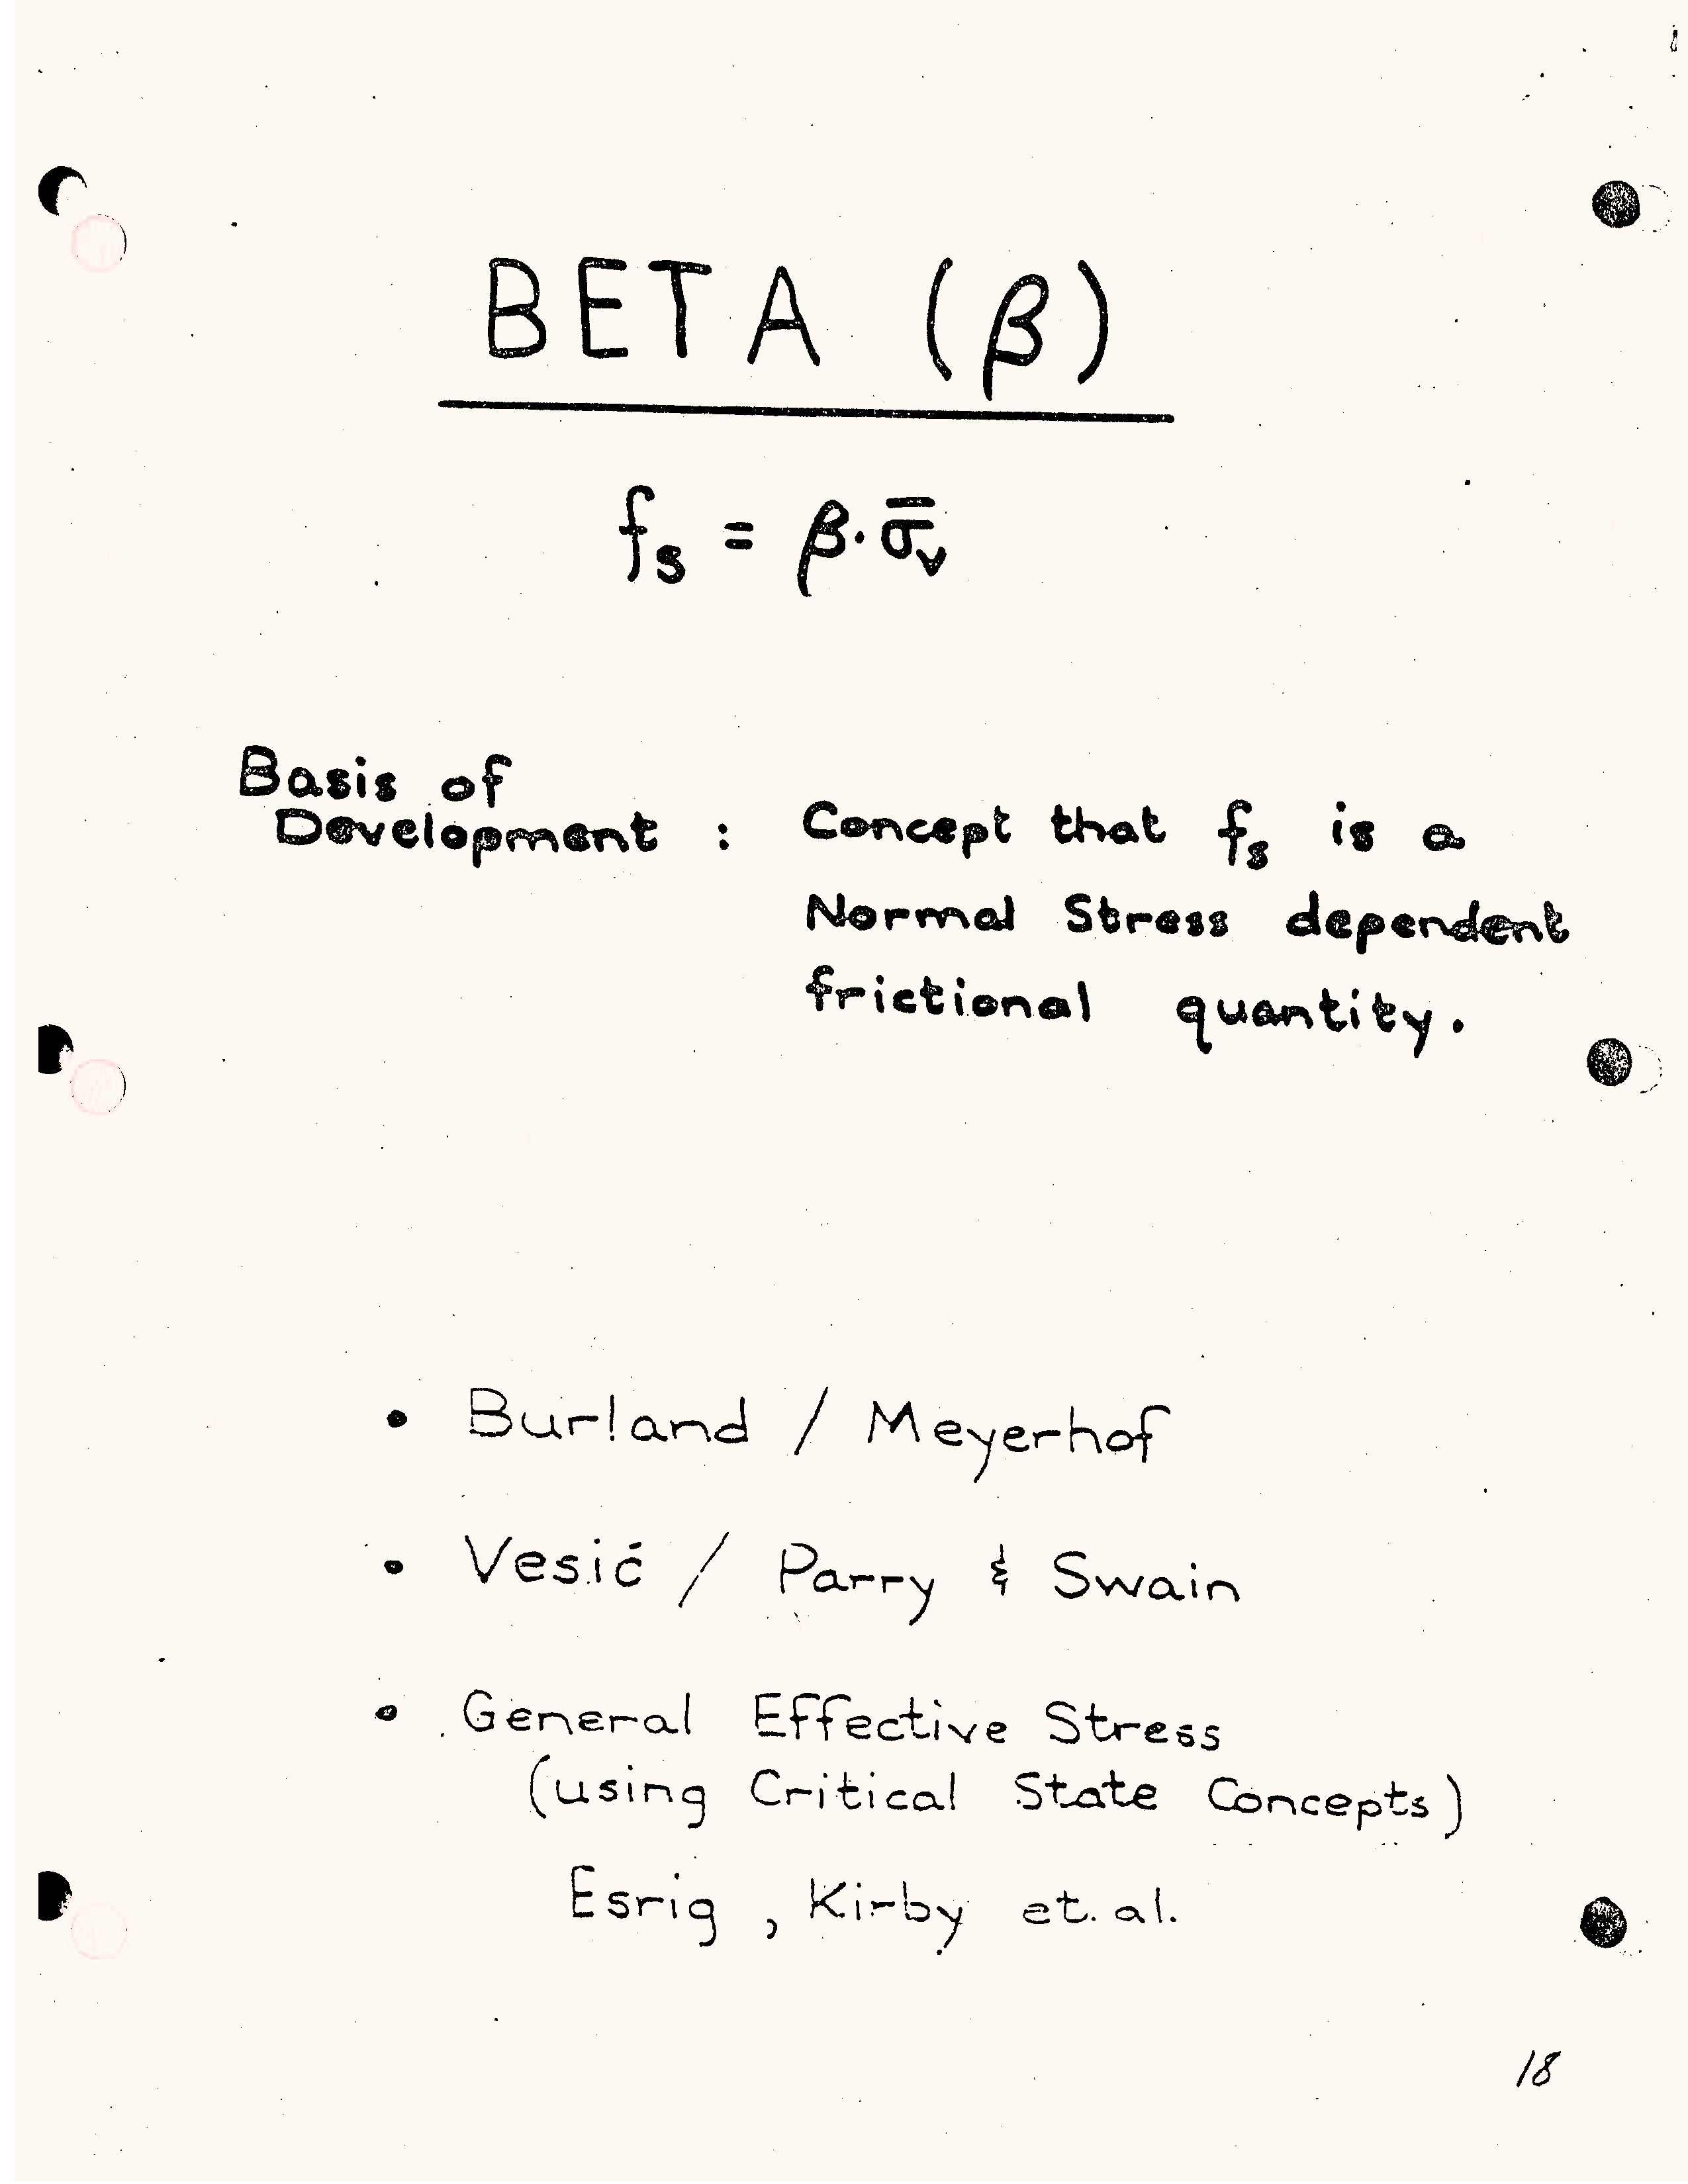 BETA (β)
fs = β·σ̄v
Basis of
Development : Concept that fs is a
Normal Stress dependent
frictional quantity.
• Burland / Meyerhof
• Vesić / Parry & Swain
• General Effective Stress
(using Critical State Concepts)
Esrig, Kirby et. al.
18